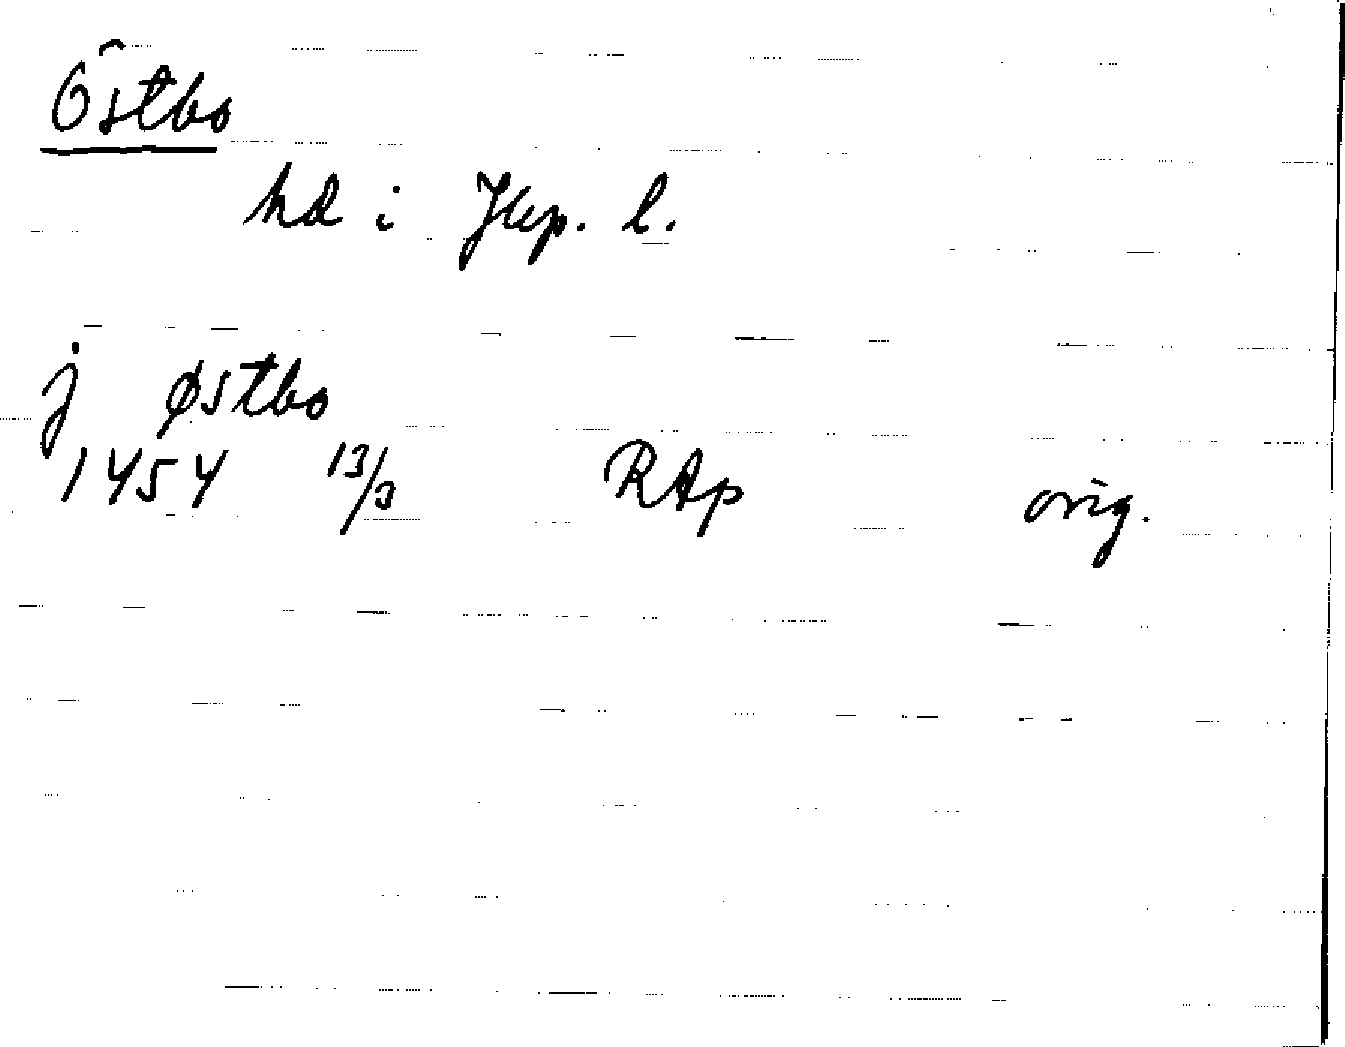 Östbo
hd i Jkp. l.
j østbo
1454 13/3 RAp orig.